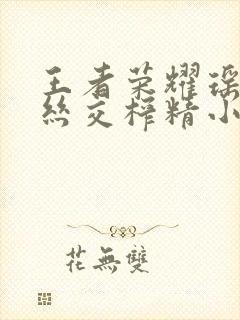 王者荣耀瑶
丝交榨精小
花無雙